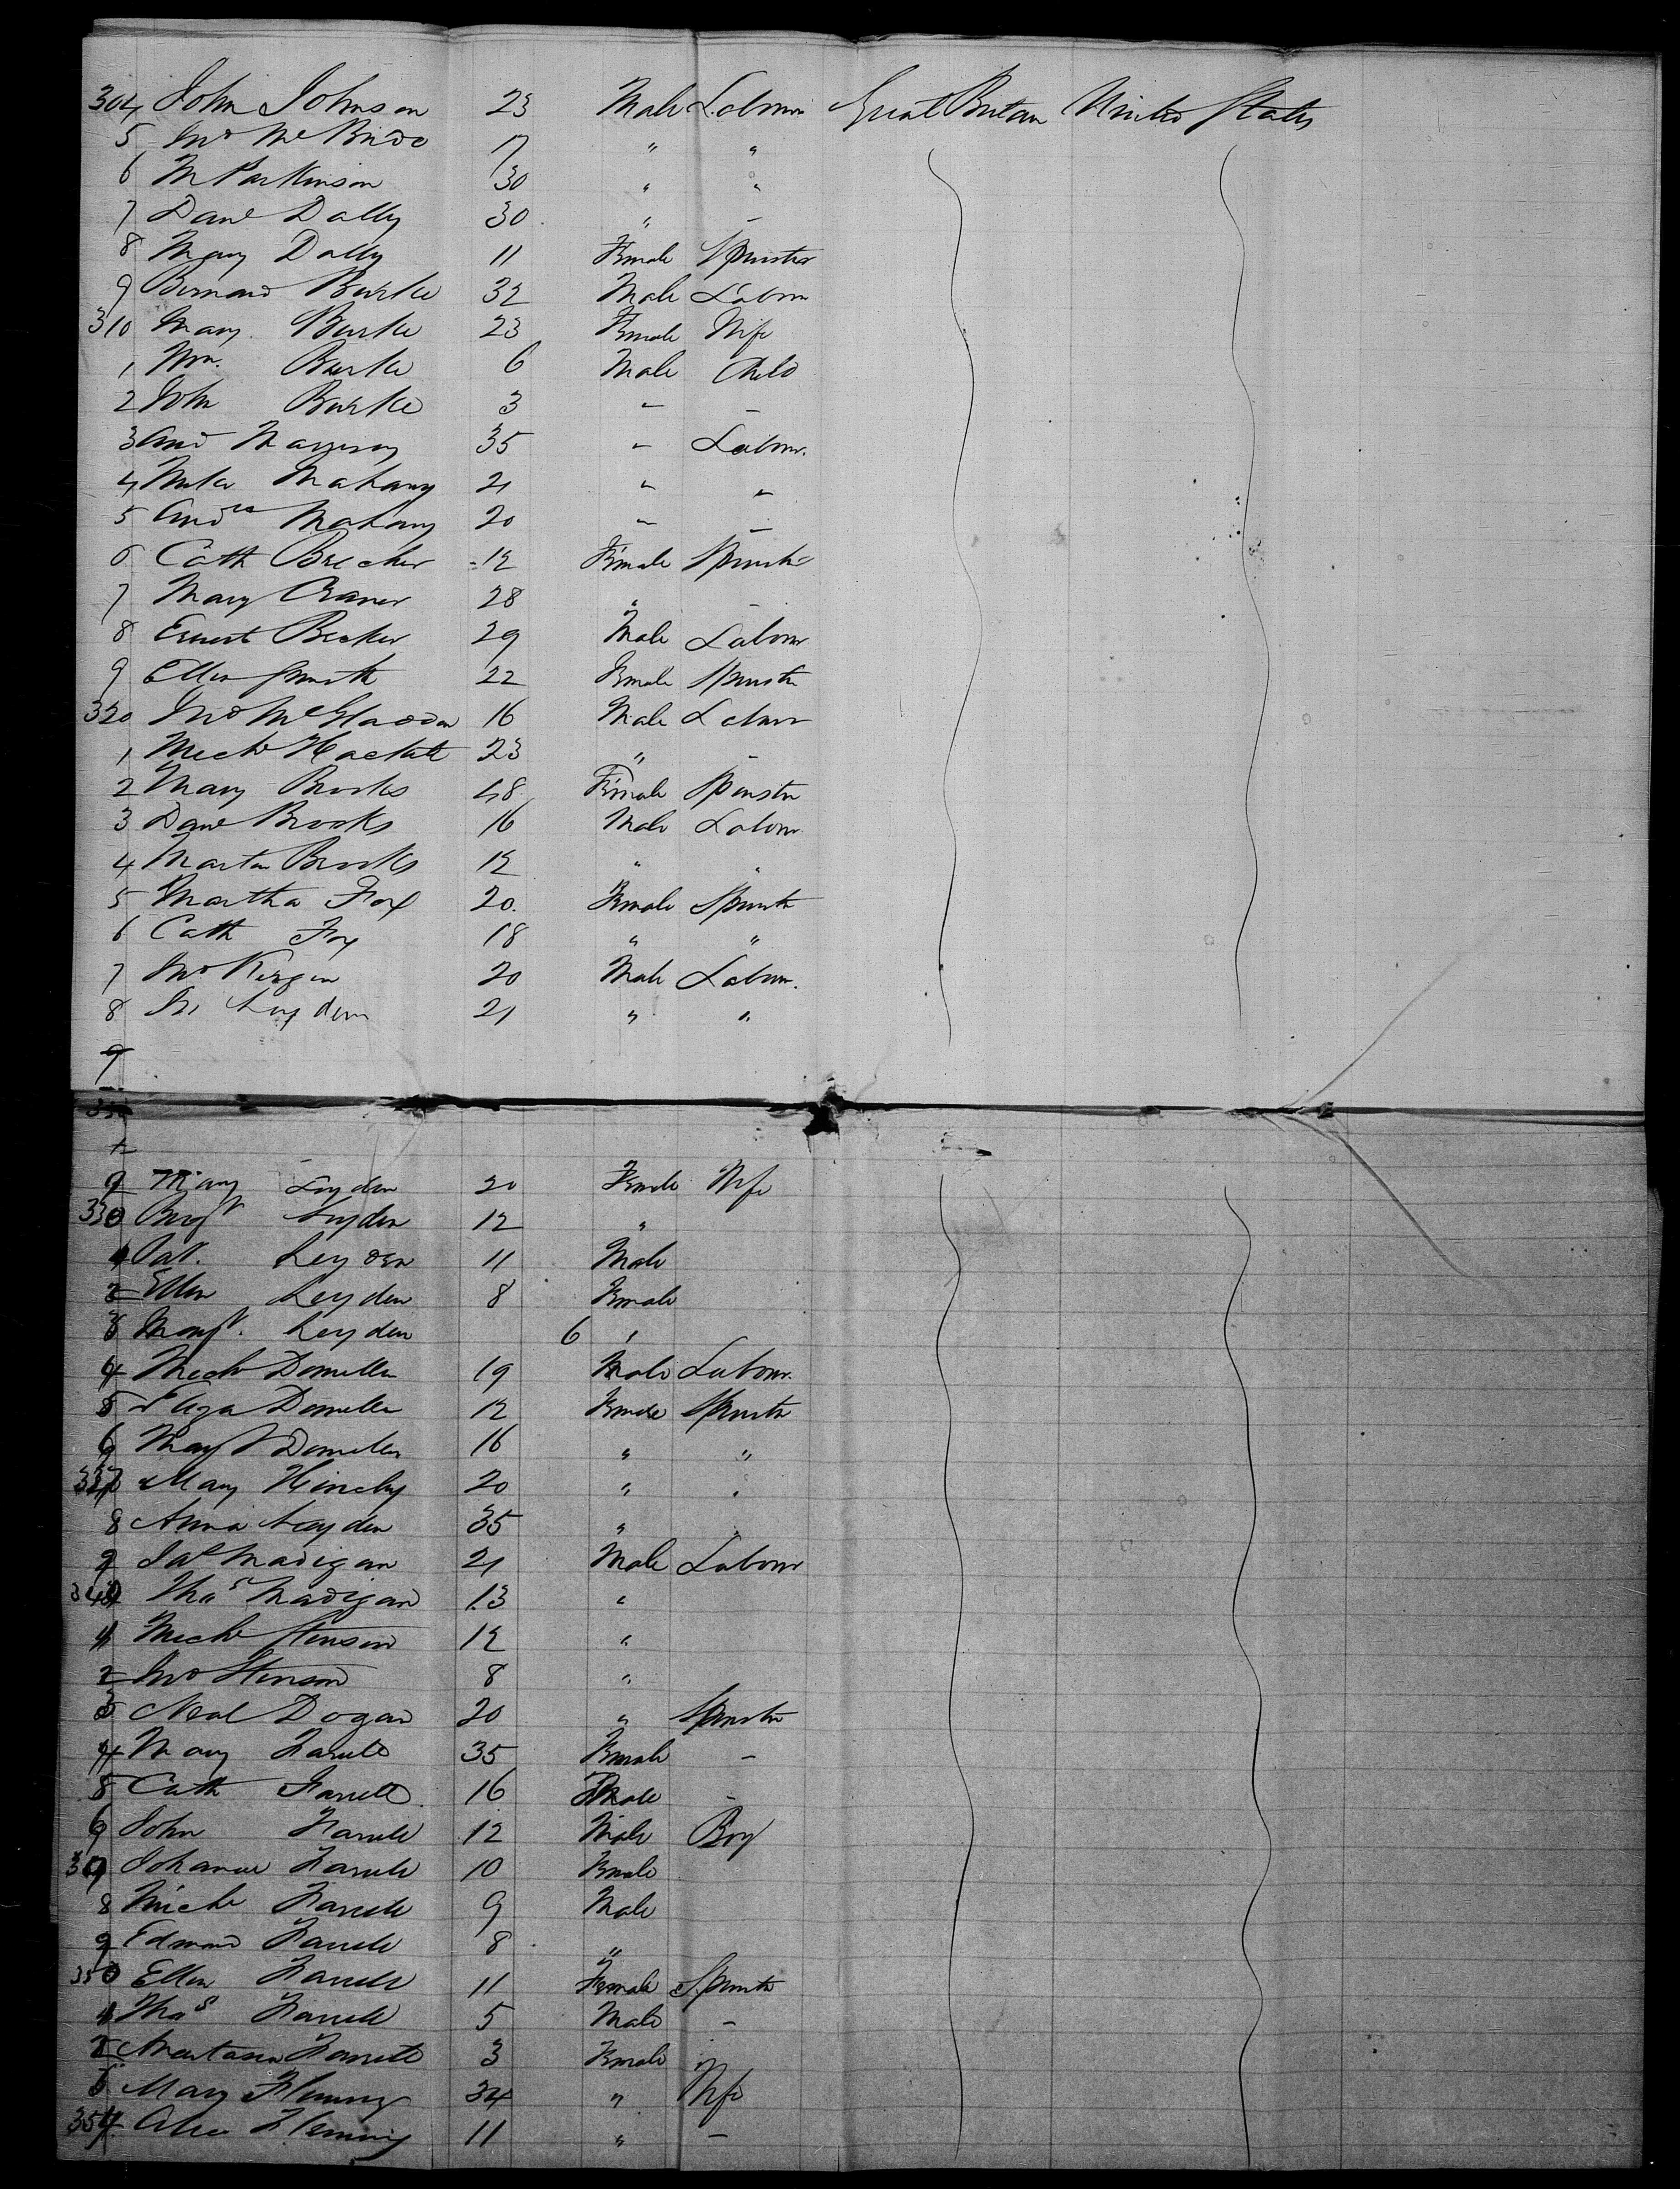 304 John Johnson 23 Male Labour Great Britan United States
5 Jno McBride 17 " "
6 M Parkinson 30 " "
7 Danl Dally 30 " -
8 Mary Dally 11 Female Spinster
9 Bernard Burke 32 Male Labour
310 Mary Burke 23 Female Wife
1 Wm. Burke 6 Male Child
2 John Burke 3 - -
3 And 35 - Labour.
4 Mahany 21 " "
5 Mahany 20 - -
6 Cath Brecher 12 Female Spinster
7 Mary 28 " -
8 Ernest Becker 29 Male Labour
9 Ellen Smith 22 Female Spinster
320 Jno McGladdon 16 Male Labour
1 Michl Hackett 23 " -
2 Mary Brooks 48 Female Spinster
3 Danl Brooks 16 Male Labour
4 Martin Brooks 12 " "
5 Martha Fox 20. Female Spinster
6 Cath Fox 18 " "
7 Jno 20 Male Labour.
8 Leyden 21 " "
9
330
1
9 Mary Leyden 20 Female Wife
330 Leyden 12 "
1 Pat. Leyden 11 Male
2 Ellen Leyden 8 Female
3 Margt. Leyden 6 "
4 Michl 19 Male Labour.
5 Eliza 12 Female Spinster
6 Margt 16 " "
337 Mary 20 " "
8 Anna Leyden 35 " "
9 Madigan 21 Male Labour
340 Thos Madigan 13 "
1 Michl Stinson 12 "
2 Jno Stinson 8 "
3 Neal Dogan 20 " Spinster
4 Mary Farrell 35 Female -
5 Cath Farrell 16 Female -
6 John Farrell 12 Male Boy
7 Johanna Farrell 10 Female
8 Michl Farrell 9 Male
9 Edmond Farrell 8 "
350 Ellen Farrell 11 Female Spinster
1 Thos Farrell 5 Male -
2 Farrell 3 Female "
3 Mary Fleming 34 " Wife
354 Fleming 11 " -